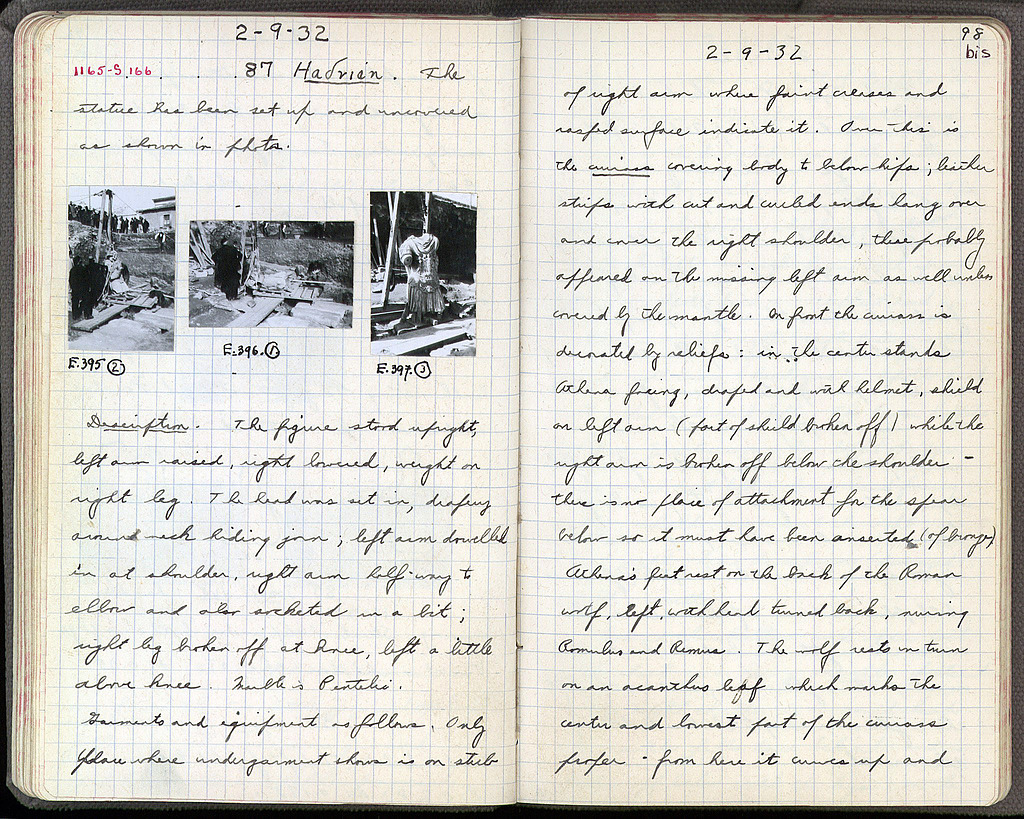 2-9-32
1165-S.166 . . 87 Hadrian. The
statue has been set up and uncovered
as shown in photos.
E.395 ② E.396.① E.397.③
Description. The figure stood upright,
left arm raised, right lowered, weight on
right leg. The head was set in, drapery
around neck hiding join; left arm dowelled
in at shoulder, right arm half-way to
elbow and also socketed in a bit;
right leg broken off at knee, left a little
above knee. Marble is Pentelic.
Garments and equipment as follows. Only
place where undergarment shows is on stub
98
bis
2-9-32
of right arm where faint creases and
rasped surface indicate it. Over this is
the cuirass covering body to below hips; leather
strips with cut and curled ends hang over
and cover the right shoulder, these probably
appeared on the missing left arm as well unless
covered by the mantle. In front the cuirass is
decorated by reliefs: in the center stands
Athena facing, draped and with helmet, shield
on left arm (part of shield broken off) while the
right arm is broken off below the shoulder -
there is no place of attachment for the spear
below so it must have been inserted (of bronze)
Athena's feet rest on the back of the Roman
wolf, left, with head turned back, nursing
Romulus and Remus. The wolf rests in turn
on an acanthus leaf which marks the
center and lowest part of the cuirass
proper - from here it curves up and